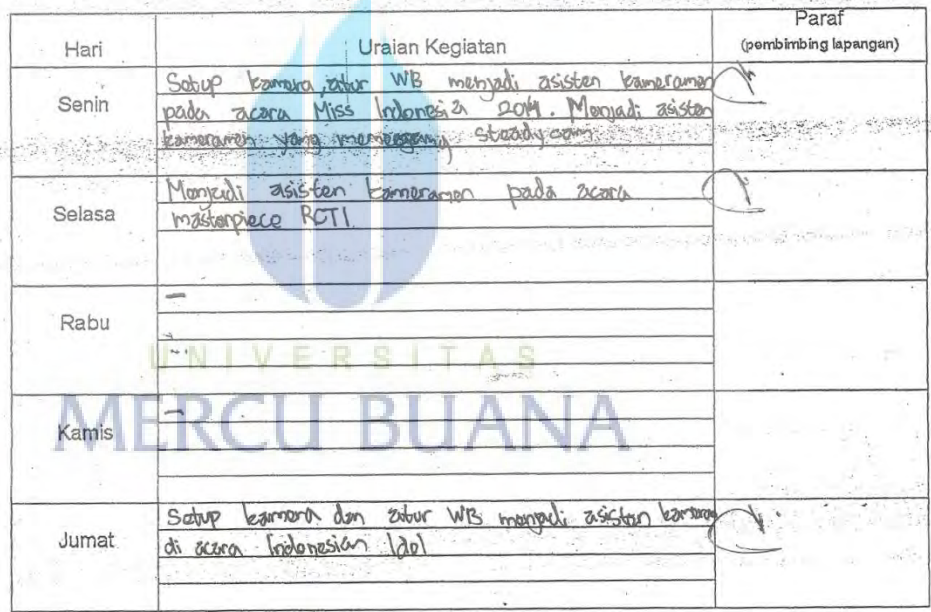 Hari Uraian Kegiatan Paraf
(pembimbing lapangan)
Senin
Setup kamera, atur WB menjadi asisten kameramen
pada acara Miss Indonesia 2014. Menjadi asisten
kameramen yang memegang steadycam
Selasa
Menjadi asisten kameramen pada acara
masterpiece RCTI
Rabu
-
UNIVERSITAS
MERCU BUANA
Kamis
-
Jumat
Setup kamera dan atur WB menjadi asisten kamera
di acara Indonesian Idol